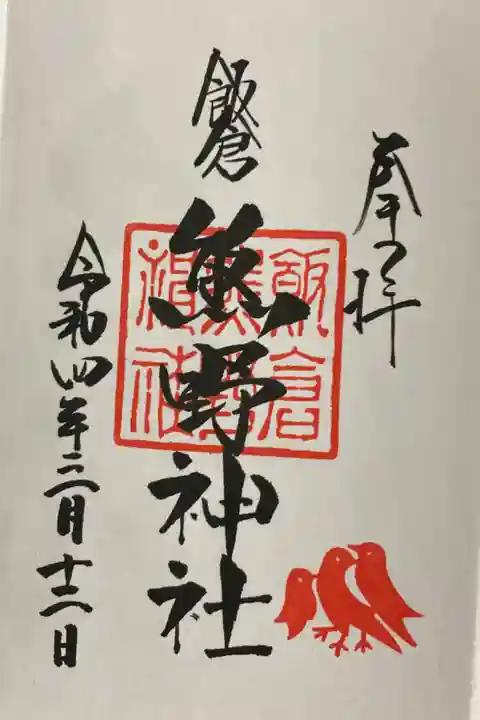 奉拝
飯倉
熊野神社
飯倉
熊野
神社
令和四年三月十二日